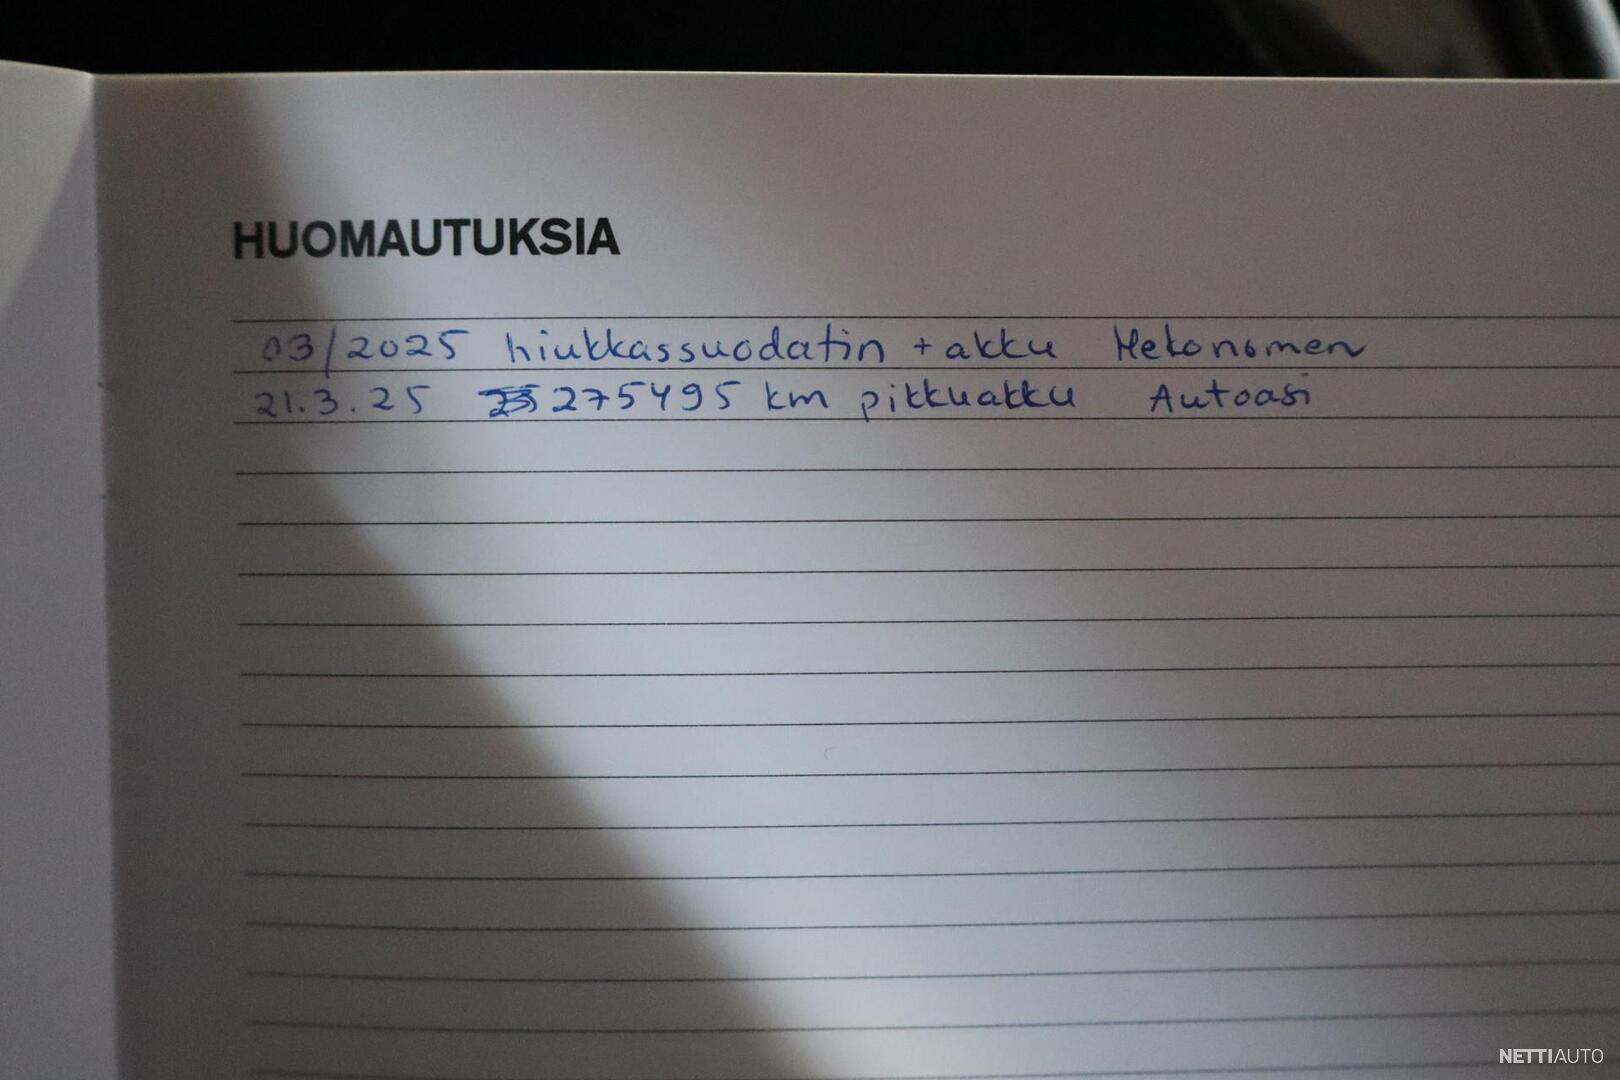 HUOMAUTUKSIA
03/2025 hiukkassuodatin + akku Mekonomen
21.3.25 275495 km pikkuakku Autoasi
NETTIAUTO